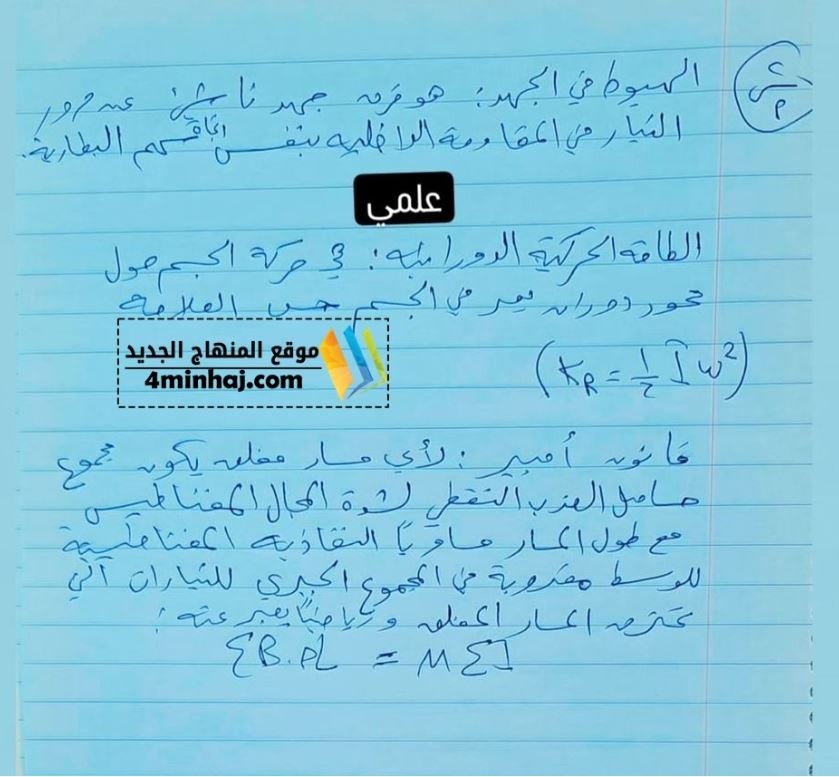 س٢
م
الهبوط في الجهد: هو فرق جهد ناشئ عند مرور
التيار في المقاومة الداخلية بنفس اتجاه سهم البطارية.
علمي
الطاقة الحركية الدورانية: في حركة الجسم حول
محور دوران يمر في الجسم حسب العلاقة
(K_R = 1/2 I ω²)
موقع المنهاج الجديد
4minhaj.com
قانون أمبير: لأي مسار مغلق يكون مجموع
حاصل الضرب النقطي لشدة المجال المغناطيسي
مع طول المسار مساويًا النفاذية المغناطيسية
للوسط مضروبة في المجموع الجبري للتيارات التي
تخترق المسار المغلق ورياضيًا يعبر عنه:
ΣB.ΔL = μΣI